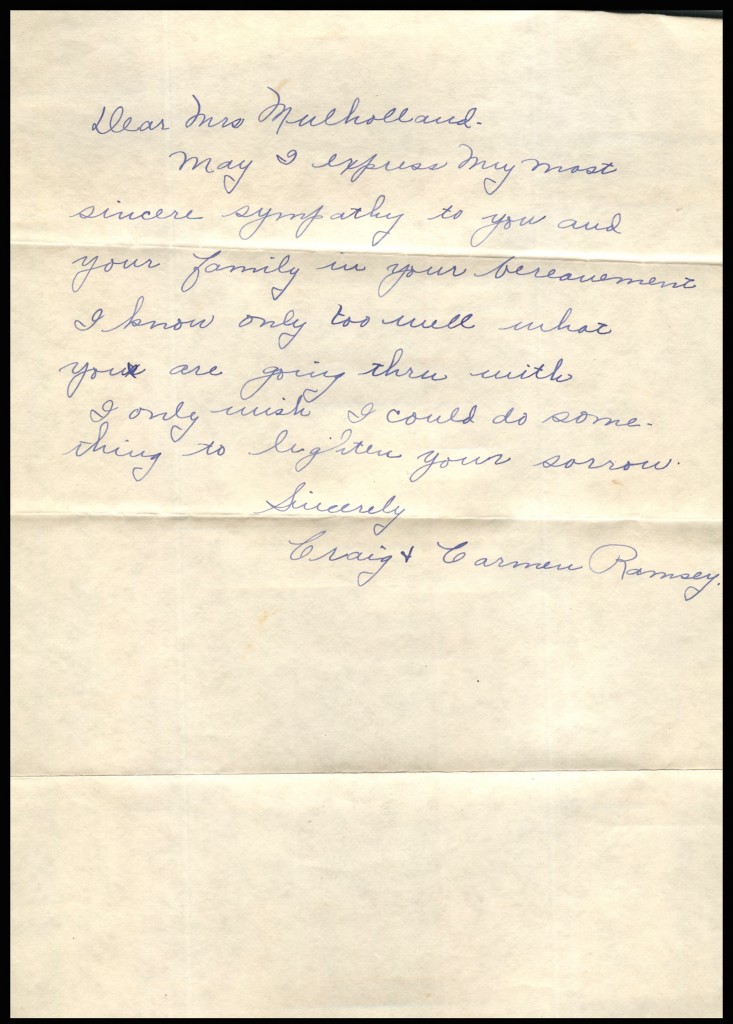 Dear Mrs Mulholland.
May I express my most
sincere sympathy to you and
your family in your bereavement
I know only too well what
you are going thru with
I only wish I could do some-
thing to lighten your sorrow.
Sincerely
Craig & Carmen Ramsey.